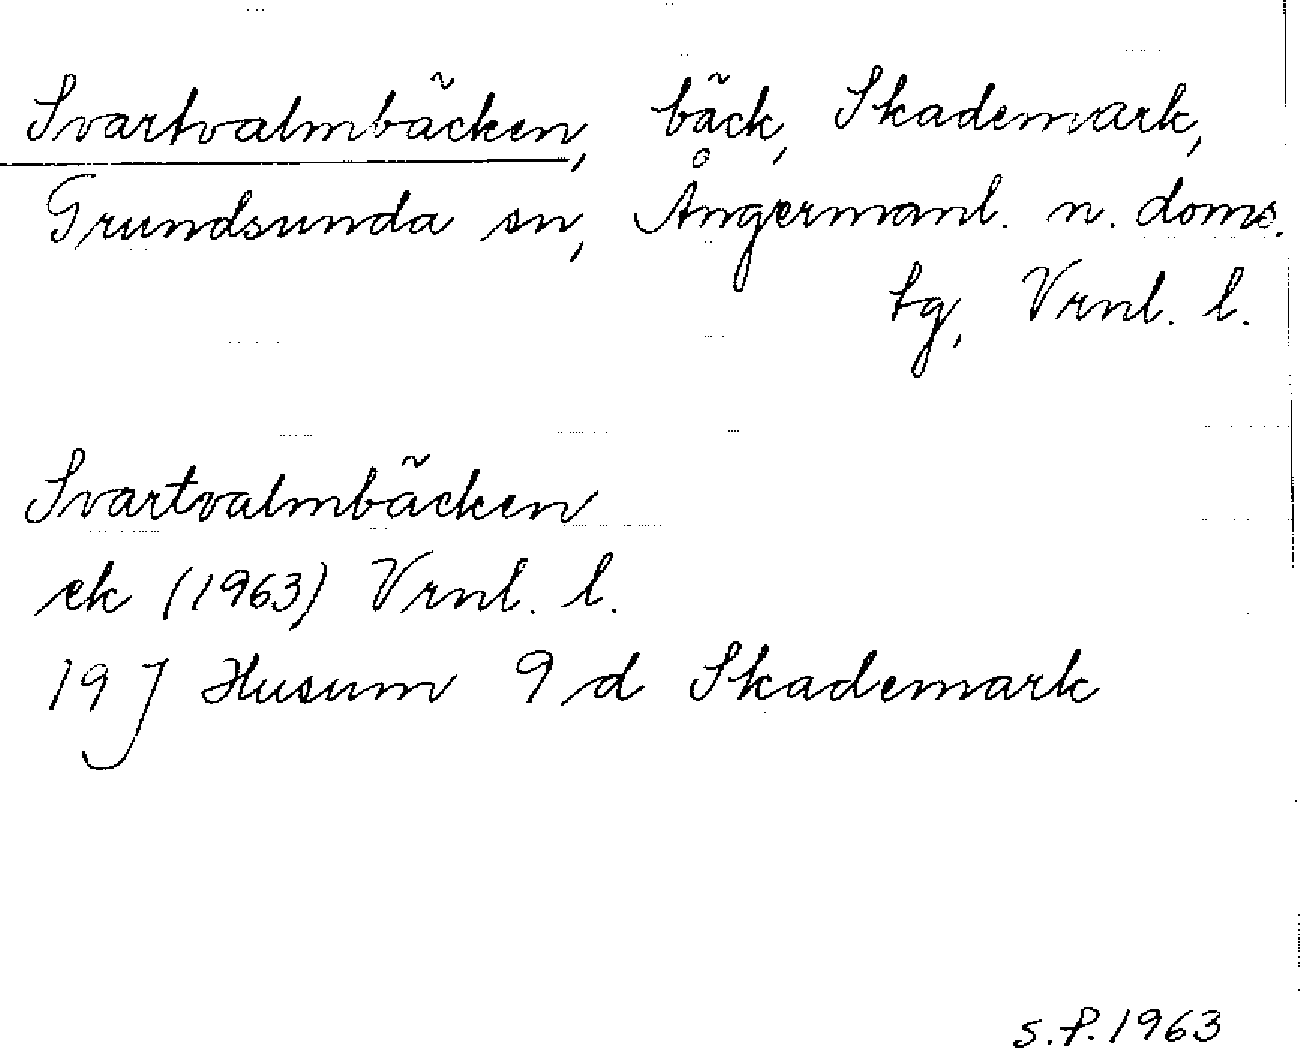 Svartvalmbäcken, bäck, Skademark,
Grundsunda sn, Ångermanl. n. doms.
tg, Vrnl. l.
Svartvalmbäcken
ek (1963) Vrnl. l.
19 J Husum 9 d Skademark
S.P. 1963